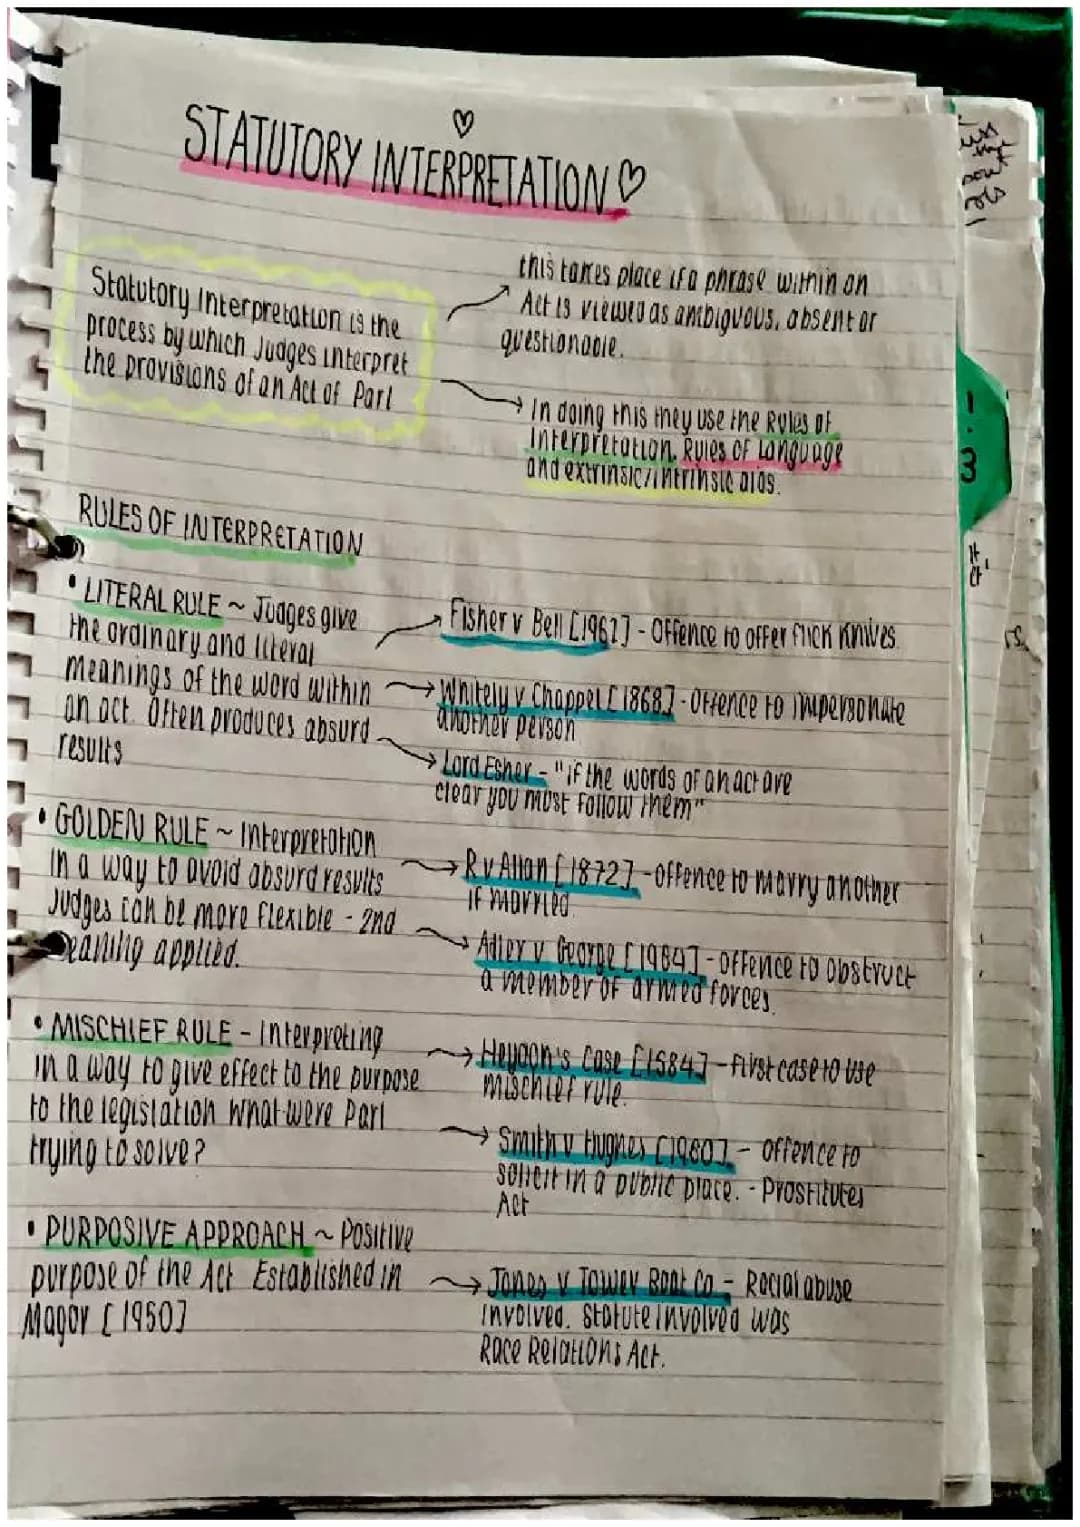 STATUTORY INTERPRETATION
Statutory Interpretation is the
process by which Judges interpret
the provisions of an Act of Parl
this takes place if a phrase within an
Act is viewed as ambiguous, absent or
questionable.
In doing this they use the Rules of
Interpretation, Rules of Language
and extrinsic/intrinsic aids.
RULES OF INTERPRETATION
• LITERAL RULE ~ Judges give
the ordinary and literal
meanings of the word within
an act. Often produces absurd
results
Fisher v Bell [1961] - Offence to offer flick knives.
Whitely v Chappel [1868] - Offence to impersonate
another person
Lord Esher - "if the words of an act are
clear you must follow them"
• GOLDEN RULE ~ Interpretation
in a way to avoid absurd results
Judges can be more flexible - 2nd
meaning applied.
R v Allan [1872] - offence to marry another
if married
Adler v. George [1964] - offence to obstruct
a member of armed forces.
• MISCHIEF RULE - Interpreting
in a way to give effect to the purpose
to the legislation what were Parl
trying to solve?
Heydon's Case [1584] - First case to use
mischief rule.
Smith v Hughes [1960] - offence to
solicit in a public place. - Prostitutes
Act
• PURPOSIVE APPROACH ~ Positive
purpose of the Act Established in
Magor [1950]
Jones v Tower Boat Co - Racial abuse
involved. Statute involved was
Race Relations Act.
1.3